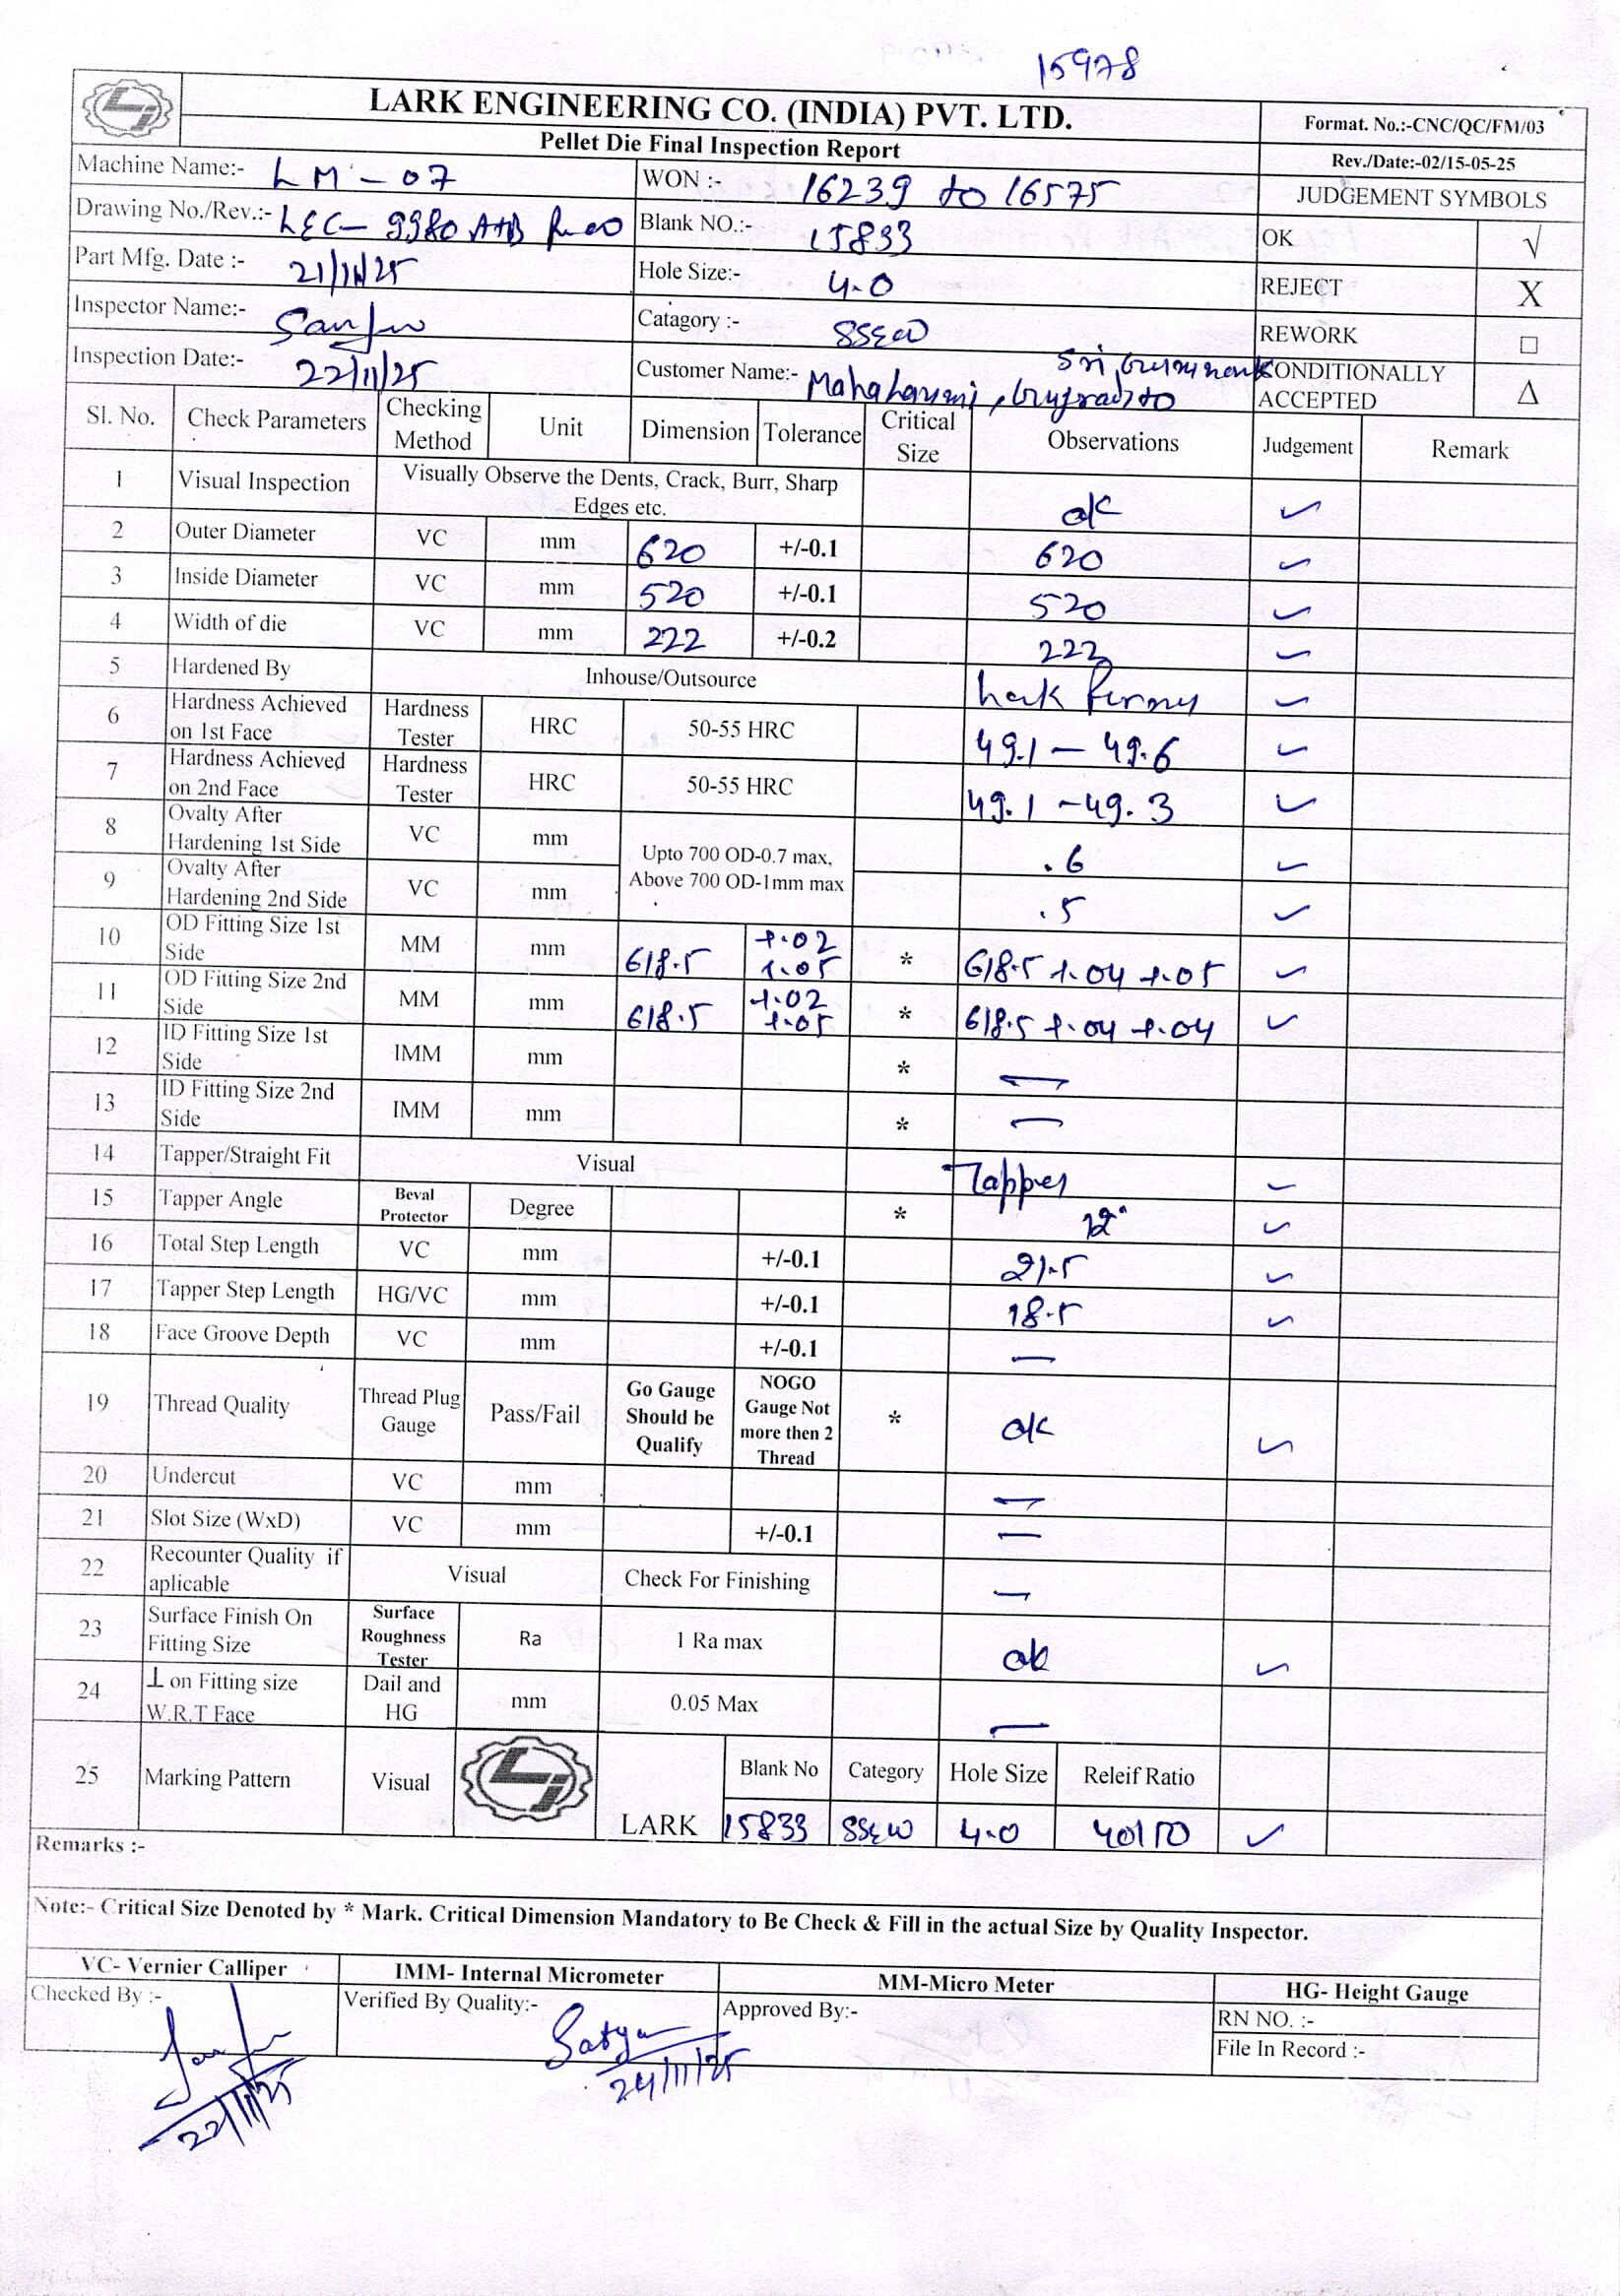 15978
LARK ENGINEERING CO. (INDIA) PVT. LTD.
Format. No.:-CNC/QC/FM/03
Pellet Die Final Inspection Report
Rev./Date:-02/15-05-25
Machine Name:- LM-07 WON :- 16239 to 16575 JUDGEMENT SYMBOLS
Drawing No./Rev.:- LEC-9980 A+B Blank NO.:- 15833 OK √
Part Mfg. Date :- 21/11/25 Hole Size:- 4.0 REJECT X
Inspector Name:- Sanju Catagory :- SSEW REWORK □
Inspection Date:- 22/11/25 Customer Name:- Mahalaxmi, Sri CONDITIONALLY ACCEPTED Δ
Sl. No. Check Parameters Checking Method Unit Dimension Tolerance Critical Size Observations Judgement Remark
1 Visual Inspection Visually Observe the Dents, Crack, Burr, Sharp Edges etc. ok ✓
2 Outer Diameter VC mm 620 +/-0.1 620 ✓
3 Inside Diameter VC mm 520 +/-0.1 520 ✓
4 Width of die VC mm 222 +/-0.2 222 ✓
5 Hardened By Inhouse/Outsource ✓
6 Hardness Achieved on 1st Face Hardness Tester HRC 50-55 HRC 49.1 - 49.6 ✓
7 Hardness Achieved on 2nd Face Hardness Tester HRC 50-55 HRC 49.1 - 49.3 ✓
8 Ovalty After Hardening 1st Side VC mm Upto 700 OD-0.7 max, Above 700 OD-1mm max .6 ✓
9 Ovalty After Hardening 2nd Side VC mm .5 ✓
10 OD Fitting Size 1st Side MM mm 618.5 +.02 +.05 * 618.5 +.04 +.05 ✓
11 OD Fitting Size 2nd Side MM mm 618.5 +.02 +.05 * 618.5 +.04 +.04 ✓
12 ID Fitting Size 1st Side IMM mm * —
13 ID Fitting Size 2nd Side IMM mm * —
14 Tapper/Straight Fit Visual Tapper ✓
15 Tapper Angle Beval Protector Degree * 12° ✓
16 Total Step Length VC mm +/-0.1 21.5 ✓
17 Tapper Step Length HG/VC mm +/-0.1 18.5 ✓
18 Face Groove Depth VC mm +/-0.1 —
19 Thread Quality Thread Plug Gauge Pass/Fail Go Gauge Should be Qualify NOGO Gauge Not more then 2 Thread * ok ✓
20 Undercut VC mm —
21 Slot Size (WxD) VC mm +/-0.1 —
22 Recounter Quality if aplicable Visual Check For Finishing —
23 Surface Finish On Fitting Size Surface Roughness Tester Ra 1 Ra max ok ✓
24 ⊥ on Fitting size W.R.T Face Dail and HG mm 0.05 Max —
25 Marking Pattern Visual LARK Blank No Category Hole Size Releif Ratio
15833 SSEW 4.0 ✓
Remarks :-
Note:- Critical Size Denoted by * Mark. Critical Dimension Mandatory to Be Check & Fill in the actual Size by Quality Inspector.
VC- Vernier Calliper IMM- Internal Micrometer MM-Micro Meter HG- Height Gauge
Checked By :- Verified By Quality:- Satya Approved By:- RN NO. :-
File In Record :-
22/11/25 24/11/25